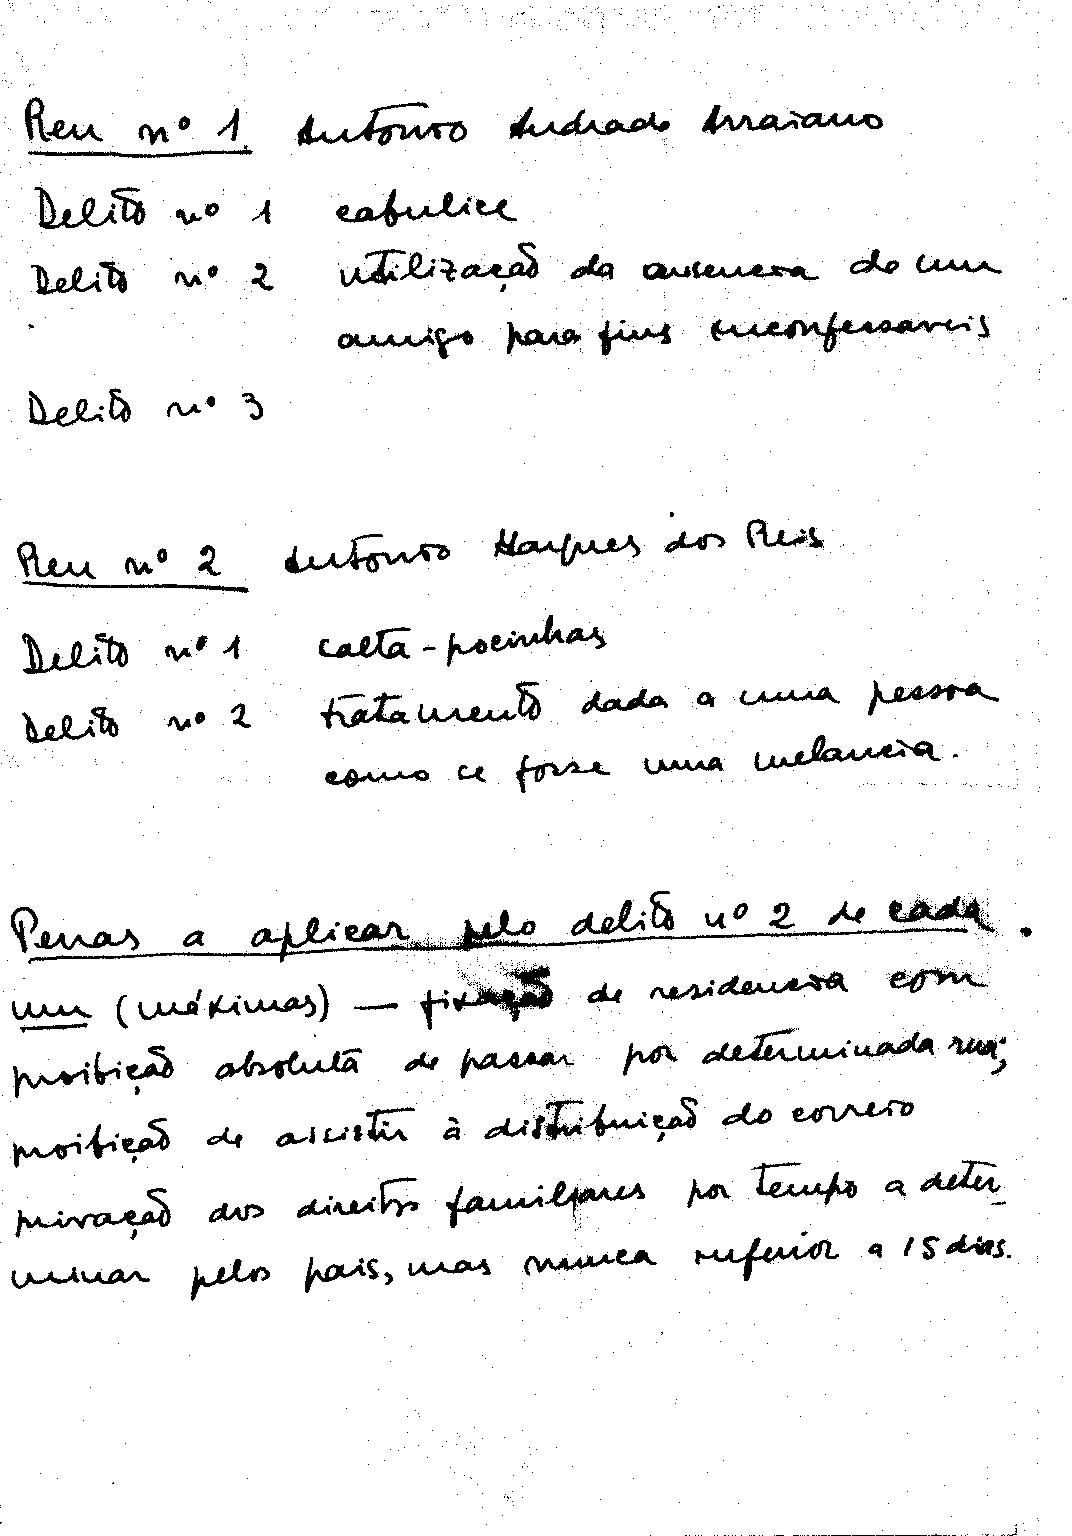 Reu nº 1 Antonio Andrade Arraiano
Delito nº 1 cabulice
Delito nº 2 utilização da ausencia de um
amigo para fins inconfessaveis
Delito nº 3
Reu nº 2 Antonio Marques dos Reis
Delito nº 1 calta-pocinhas
Delito nº 2 tratamento dada a uma pessoa
como se fosse uma melancia.
Penas a aplicar pelo delito nº 2 de cada
um (máximas) — fixação de residencia com
proibição absoluta de passar por determinada rua;
proibição de assistir à distribuição do correio
privação dos direitos familiares por tempo a deter_
minar pelos pais, mas nunca inferior a 15 dias.